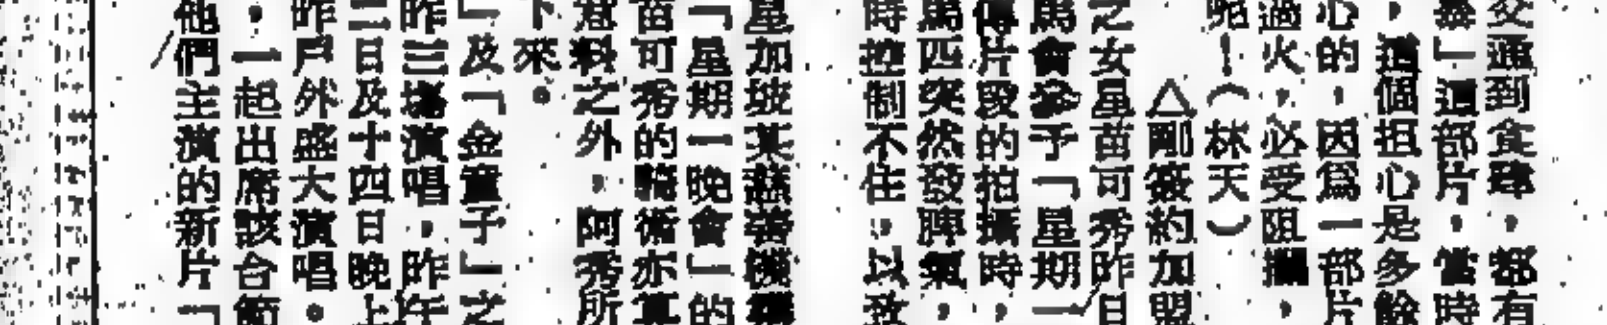 交通到食肆，都有
暴」這部片，當時
，這個担心是多餘
心的，因爲一部片
過火，必受阻攔，
呢！（林天）
△剛簽約加盟
之女星苗可秀昨日
馬會參予「星期一
傳片段的拍攝時，
馬匹突然發脾氣，
時控制不住，以致
星加坡某慈善機構
「星期一晚會」的
苗可秀的騎術亦算
意料之外，阿秀所
下來。
」及「金童子」之
昨三塲演唱，昨午
二日及十四日晚上
昨戶外盛大演唱。
，一起出席該台節
他們主演的新片「